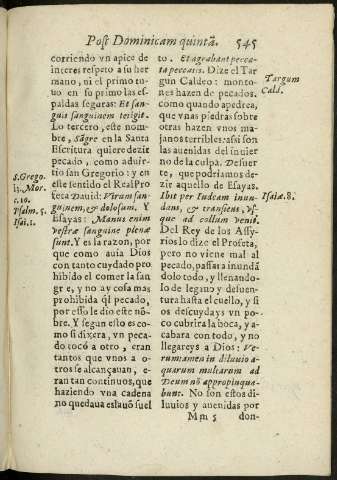 Post Dominicam quintã. 545
corriendo vn apice de
interes respeto a su her
mano, ni el primo tu-
uo en su primo las es-
paldas seguras: Et san-
guis sanguinem tetigit.
Lo tercero, este nom-
bre, Sãgre en la Santa
Escritura quiere dezir
pecado, como aduir-
tio san Gregorio: y en
este sentido el Real Pro
feta Dauid: Virum san-
guinem, & dolosum. Y
Esayas: Manus enim
vestræ sanguine plenæ
sunt. Y es la razon, por
que como auia Dios
con tanto cuydado pro
hibido el comer la san
gre, y no ay cosa mas
prohibida q̃ el pecado,
por esso le dio este nõ-
bre. Y segun esto es co-
mo si dixera, vn peca-
do tocò a otro, eran
tantos que vnos a o-
tros se alcançauan, e-
ran tan continuos, que
haziendo vna cadena
no quedaua eslauõ suel
S. Grego.
li. Mor.
c. 10.
Psalm. 5.
Isai. 1.
to. Et agrabant pecca-
ta peccatis. Dize el Tar
gun Caldeo: monto-
nes hazen de pecados.
como quando apedrea,
que vnas piedras sobre
otras hazen vnos ma-
janos terribles: assi son
las auenidas del inuier
no de la culpa. De suer
te, que podriamos de-
zir aquello de Esayas.
Ibit per Iudeam inun-
dans, & transiens, vs-
que ad collum veniet.
Del Rey de los Assy-
rios lo dize el Profeta,
pero no viene mal al
pecado, passarà inundã
dolo todo, y llenando-
lo de légano y desuen-
tura hasta el cuello, y si
os descuydays vn po-
co cubrira la boca, y a-
cabara con todo, y no
llegareys a Dios: Ve-
runtamen in diluuio a-
quarum multarum ad
Deum nõ appropinqua-
bunt. No son estos di-
luuios y auenidas por
Targum
Cald.
Isaiæ. 8.
Mm 5 don-